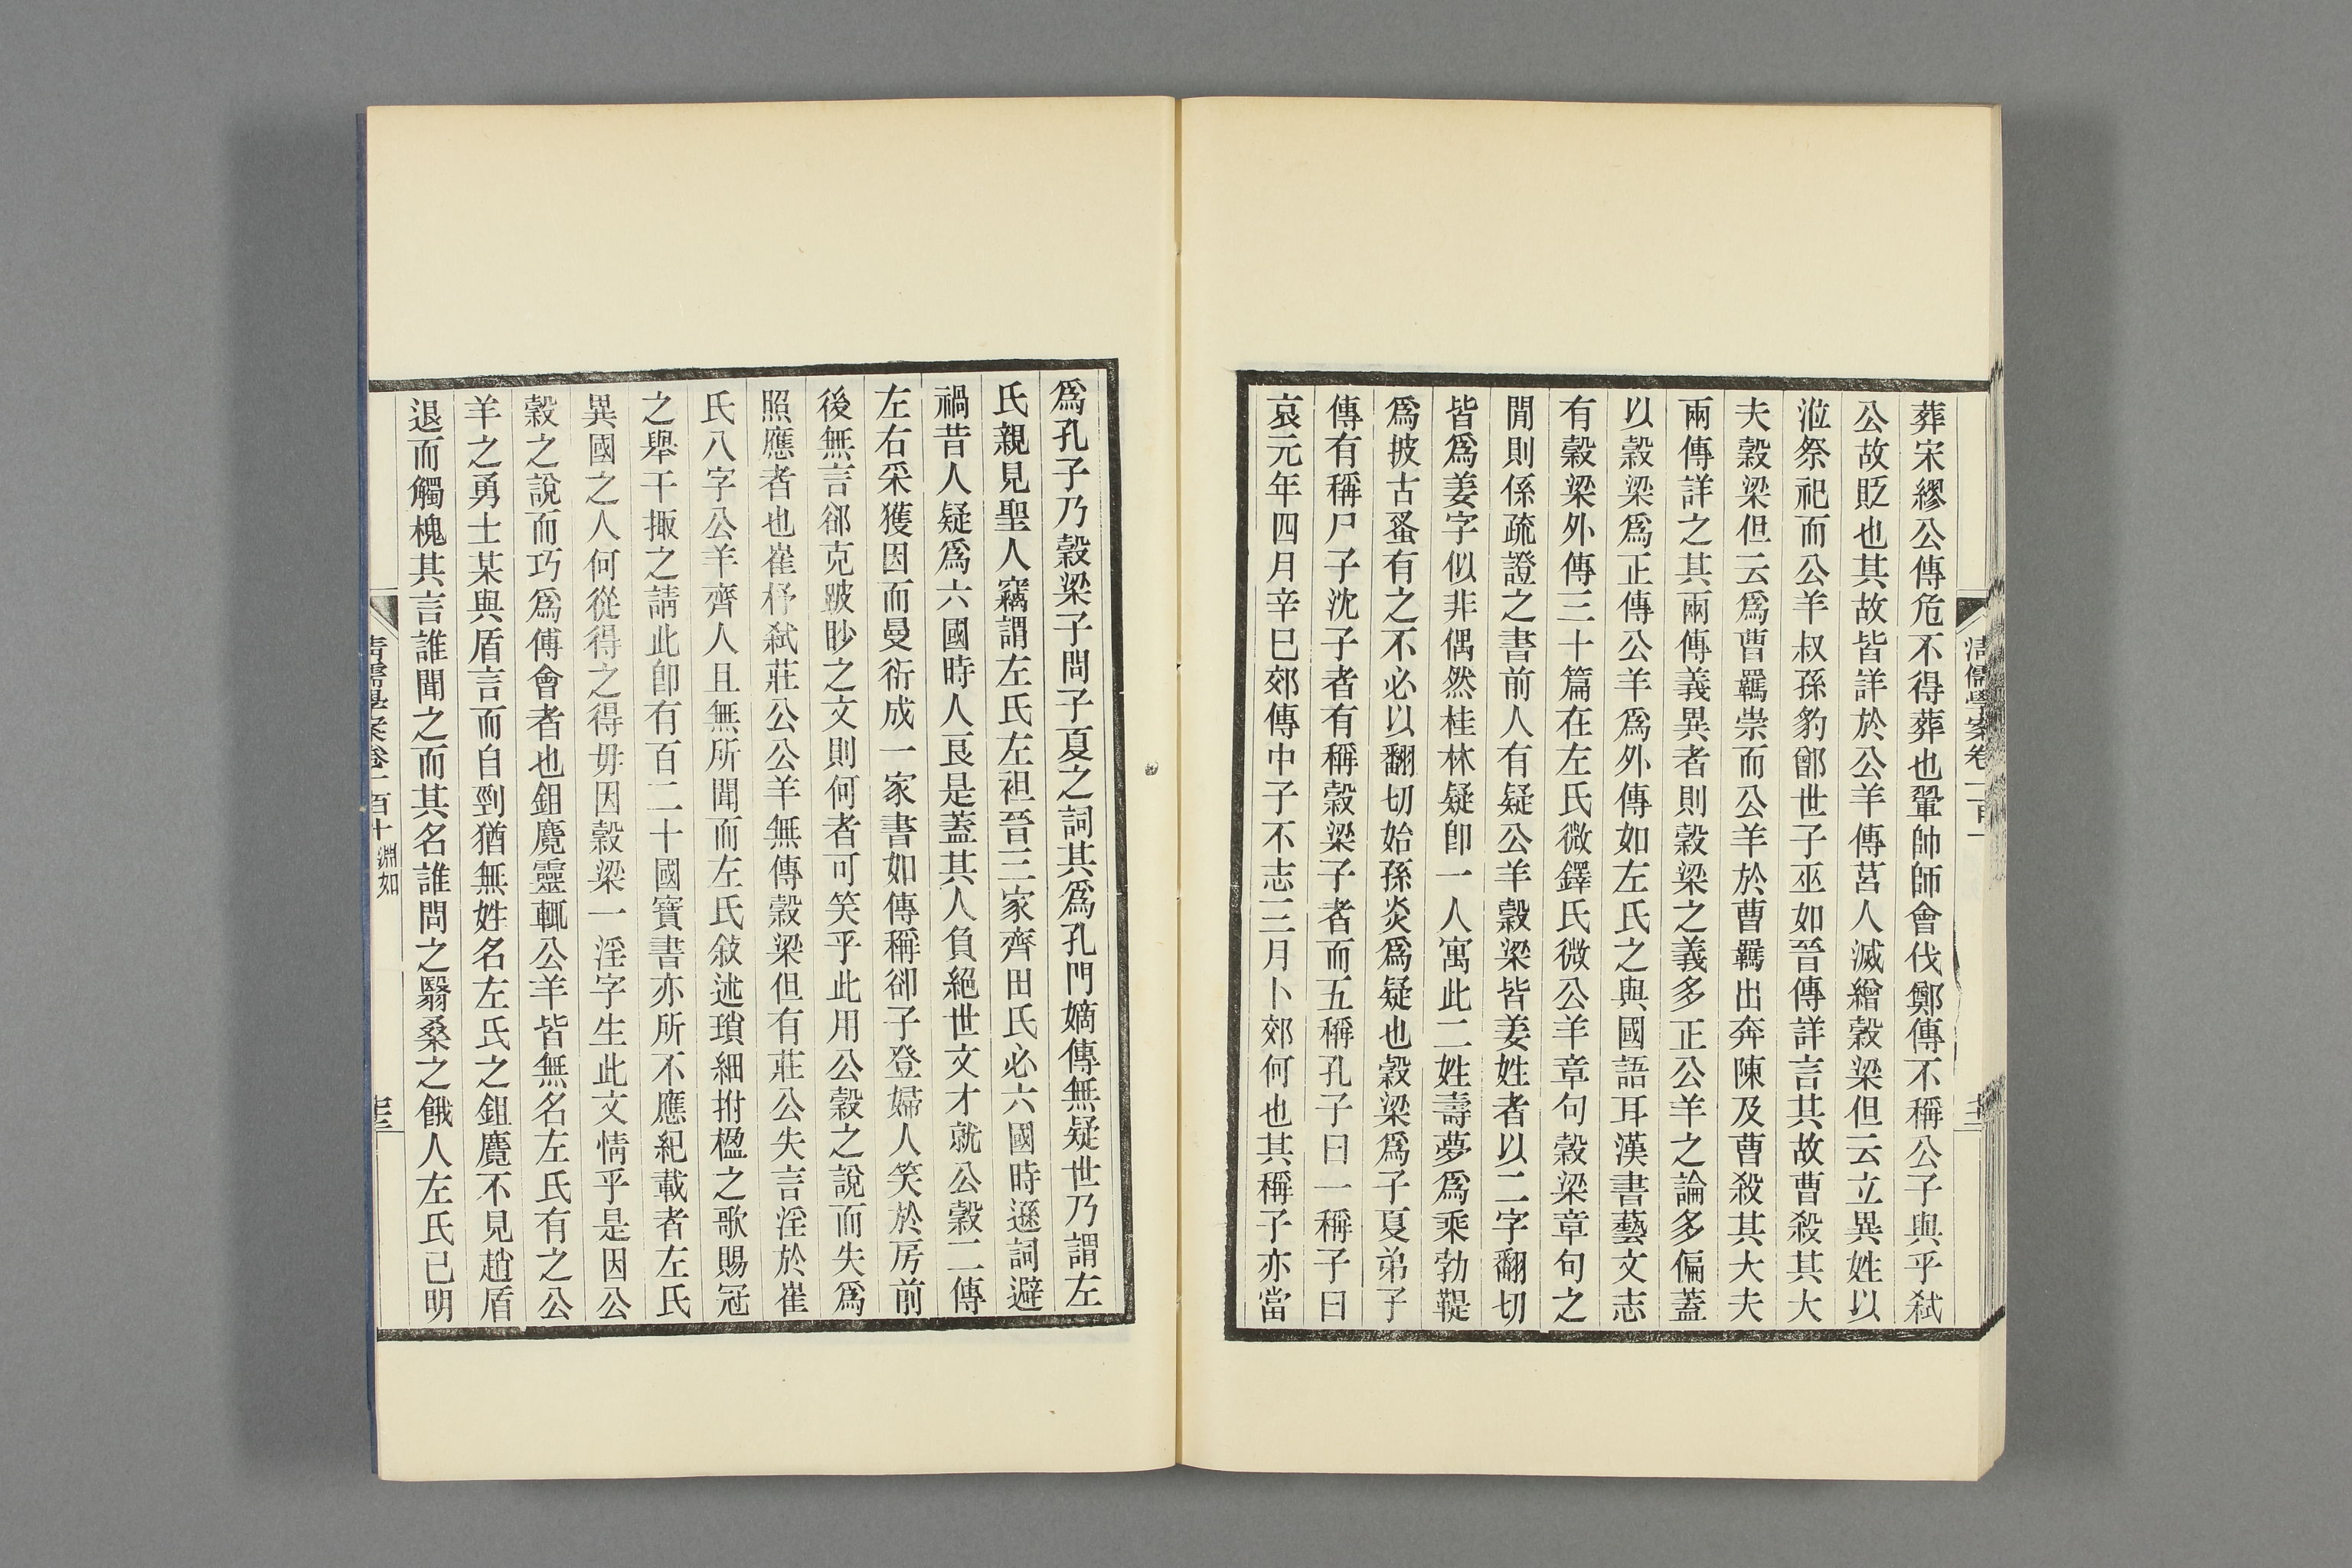 葬宋繆公傳危不得葬也翬帥師會伐鄭傳不稱公子與乎弑
公故貶也其故皆詳於公羊傳莒人滅繒穀梁但云立異姓以
涖祭祀而公羊叔孫豹鄫世子巫如晉傳詳言其故曹殺其大
夫穀梁但云爲曹羈崇而公羊於曹羈出奔陳及曹殺其大夫
兩傳詳之其兩傳義異者則穀梁之義多正公羊之論多偏蓋
以穀梁爲正傳公羊爲外傳如左氏之與國語耳漢書藝文志
有穀梁外傳三十篇在左氏微鐸氏微公羊章句穀梁章句之
閒則係疏證之書前人有疑公羊穀梁皆姜姓者以二字翻切
皆爲姜字似非偶然桂林疑卽一人寓此二姓壽夢爲乘勃鞮
爲披古蚤有之不必以翻切始孫炎爲疑也穀梁爲子夏弟子
傳有稱尸子沈子者有稱穀梁子者而五稱孔子曰一稱子曰
哀元年四月辛巳郊傳中子不志三月卜郊何也其稱子亦當
爲孔子乃穀梁子問子夏之詞其爲孔門嫡傳無疑世乃謂左
氏親見聖人竊謂左氏左袒晉三家齊田氏必六國時遜詞避
禍昔人疑爲六國時人良是蓋其人負絕世文才就公穀二傳
左右采獲因而曼衍成一家書如傳稱卻子登婦人笑於房前
後無言郤克跛眇之文則何者可笑乎此用公穀之說而失爲
照應者也崔杼弑莊公公羊無傳穀梁但有莊公失言淫於崔
氏八字公羊齊人且無所聞而左氏敍述瑣細拊楹之歌賜冠
之舉干掫之請此卽有百二十國寶書亦所不應紀載者左氏
異國之人何從得之得毋因穀梁一淫字生此文情乎是因公
穀之說而巧爲傅會者也鉏麑靈輒公羊皆無名左氏有之公
羊之勇士某與盾言而自剄猶無姓名左氏之鉏麑不見趙盾
退而觸槐其言誰聞之而其名誰問之翳桑之餓人左氏已明
清儒學案卷一百十 淵如